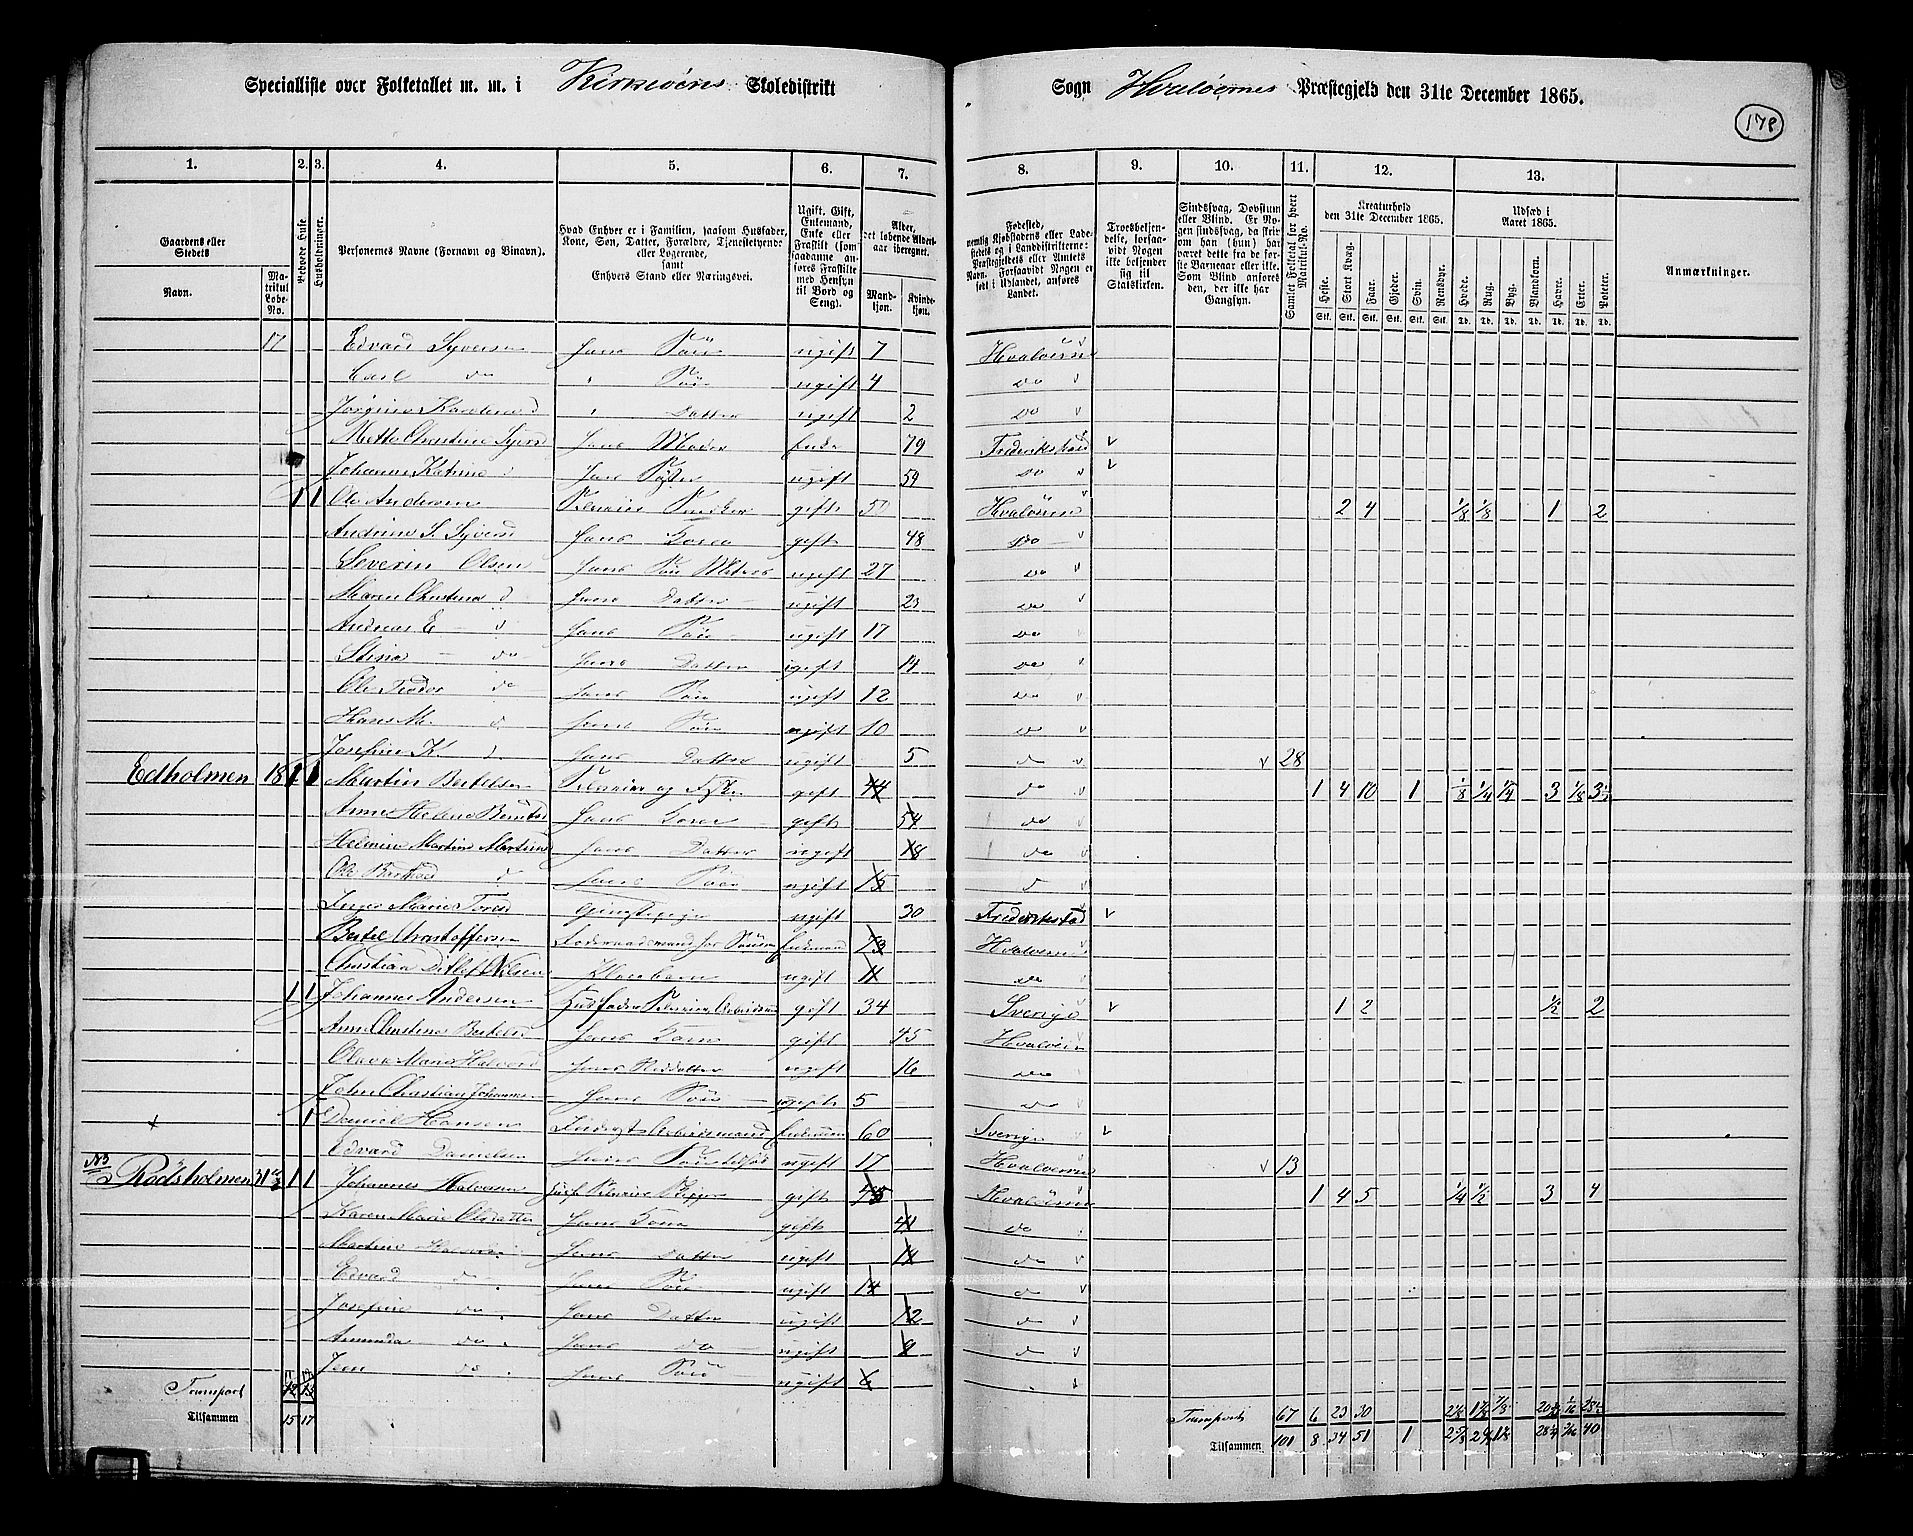 Specialliste over Folketallet m. m. i Kirkeøens Skoledistrikt Sogn Hvaløernes Præstegjeld den 31te December 1865.
178
1. 2. 3. 4. 5. 6. 7. 8. 9. 10. 11. 12. 13.
Gaardens eller Stedets Navn. Matrikul Løbe-No. Beboede Huse Husholdninger. Personernes Navne (Fornavn og Binavn). Hvad Enhver er i Familien, saasom Husfader, Kone, Søn, Datter, Forældre, Tjenestetyende eller Logerende, samt Enhvers Stand eller Næringsvei. Ugift, Gift, Enkemand, Enke eller Fraskilt (som saadanne anføres Fraskilte med Hensyn til Bord og Seng). Alder, det løbende Alders-aar iberegnet. Mandkjøn. Kvindekjøn.
Fødested, nemlig Kjøbstadens eller Ladestedets og i Landdistrikterne: Præstegjeldets eller Amtets Navn. Forsaavidt Nogen er født i Udlandet, anføres Landet. Troesbekjendelse, forsaavidt Nogen ikke bekjender sig til Statskirken. Sindssvag, Døvstum eller Blind. Er Nogen sindssvag, da skrives om han (hun) har været dette fra de første Barneaar eller ikke. Som Blind anføres den, der ikke har Gangsyn. Samlet Folketal for hvert Matrikul-No. Kreaturhold den 31te December 1865. Heste. Stort Kvæg. Faar. Gjeder. Svin. Rensdyr. Udsæd i Aaret 1865. Hvede. Rug. Byg. Blandkorn. Havre. Erter. Poteter. Anmærkninger.
17 Edvard Syversen hans Søn ugift 7 Hvaløerne
Carl do " Søn ugift 4 do
Jørgine Karoline d " Datter ugift 2 do
Mette Christine Syvers hans Moder Enke 79 Frederikstad
Johanne Katrine hans Søster ugift 59 do
1 1 Ole Andersen Selveier gift 51 Hvaløerne 2 4 1/8 1/8 1 2
Andrine S. Syversd hans Kone gift 48 do
Severin Olsen hans Søn Matros ugift 27 do
Maren Christine d hans Datter ugift 23 do
Andreas E d hans Søn ugift 17 do
Stina do hans Datter ugift 14 do
Ole Teodor do hans Søn ugift 12 do
Hans M. d hans Søn ugift 10 do
Josefine K. d hans Datter ugift 5 do 28
Edholmen 18 1 1 Martin Bertelsen Selveier og Fisker gift 44 do 1 4 10 1 1/8 1/4 1/4 3 1/8 3 1/2
Anne Helene hans Kone gift 54 do
Helmine Martine Martinsd hans Datter ugift 18 do
Ole d hans Søn ugift 15 d
Inger Marie Tjenestepige ugift 30 Frederikstad
Bertel Christoffersen Enkemand 73 Hvaløerne
Christian Ditlef Nilsen Pleiebarn ugift 11 do
1 1 Johannes Andersen Husfader Selveier Arbeidsm gift 34 Sverige 1 2 1/2 2
Anne Christine Bertelsd hans Kone gift 45 Hvaløerne
Olava Maria Halvorsd hans Steddatter ugift 16 do
John Christian Johannesen hans Søn ugift 5 do
+ 1 Daniel Hansen Inderst Arbeidsmand Enkemand 60 Sverige
Edvard Danielsen hans Søn ugift 17 Hvaløerne 13
No 3
Rødsholmen 31 1 1 Johannes Halvorsen Husf Selveier Skipper gift 45 Hvaløerne 1 4 5 1/4 1/2 3 4
Karen Marie Olsdatter hans Kone gift 41 do
Martine hans Datter ugift 18 do
Edvard do hans Søn ugift 14 d
Josefine do hans Datter ugift 12 d
Amunda do hans do ugift 9 d
Jeen do hans Søn ugift 6
Transport 12 13 Transport 67 6 23 30
Tilsammen 15 17 Tilsammen 101 8 34 51 1 40